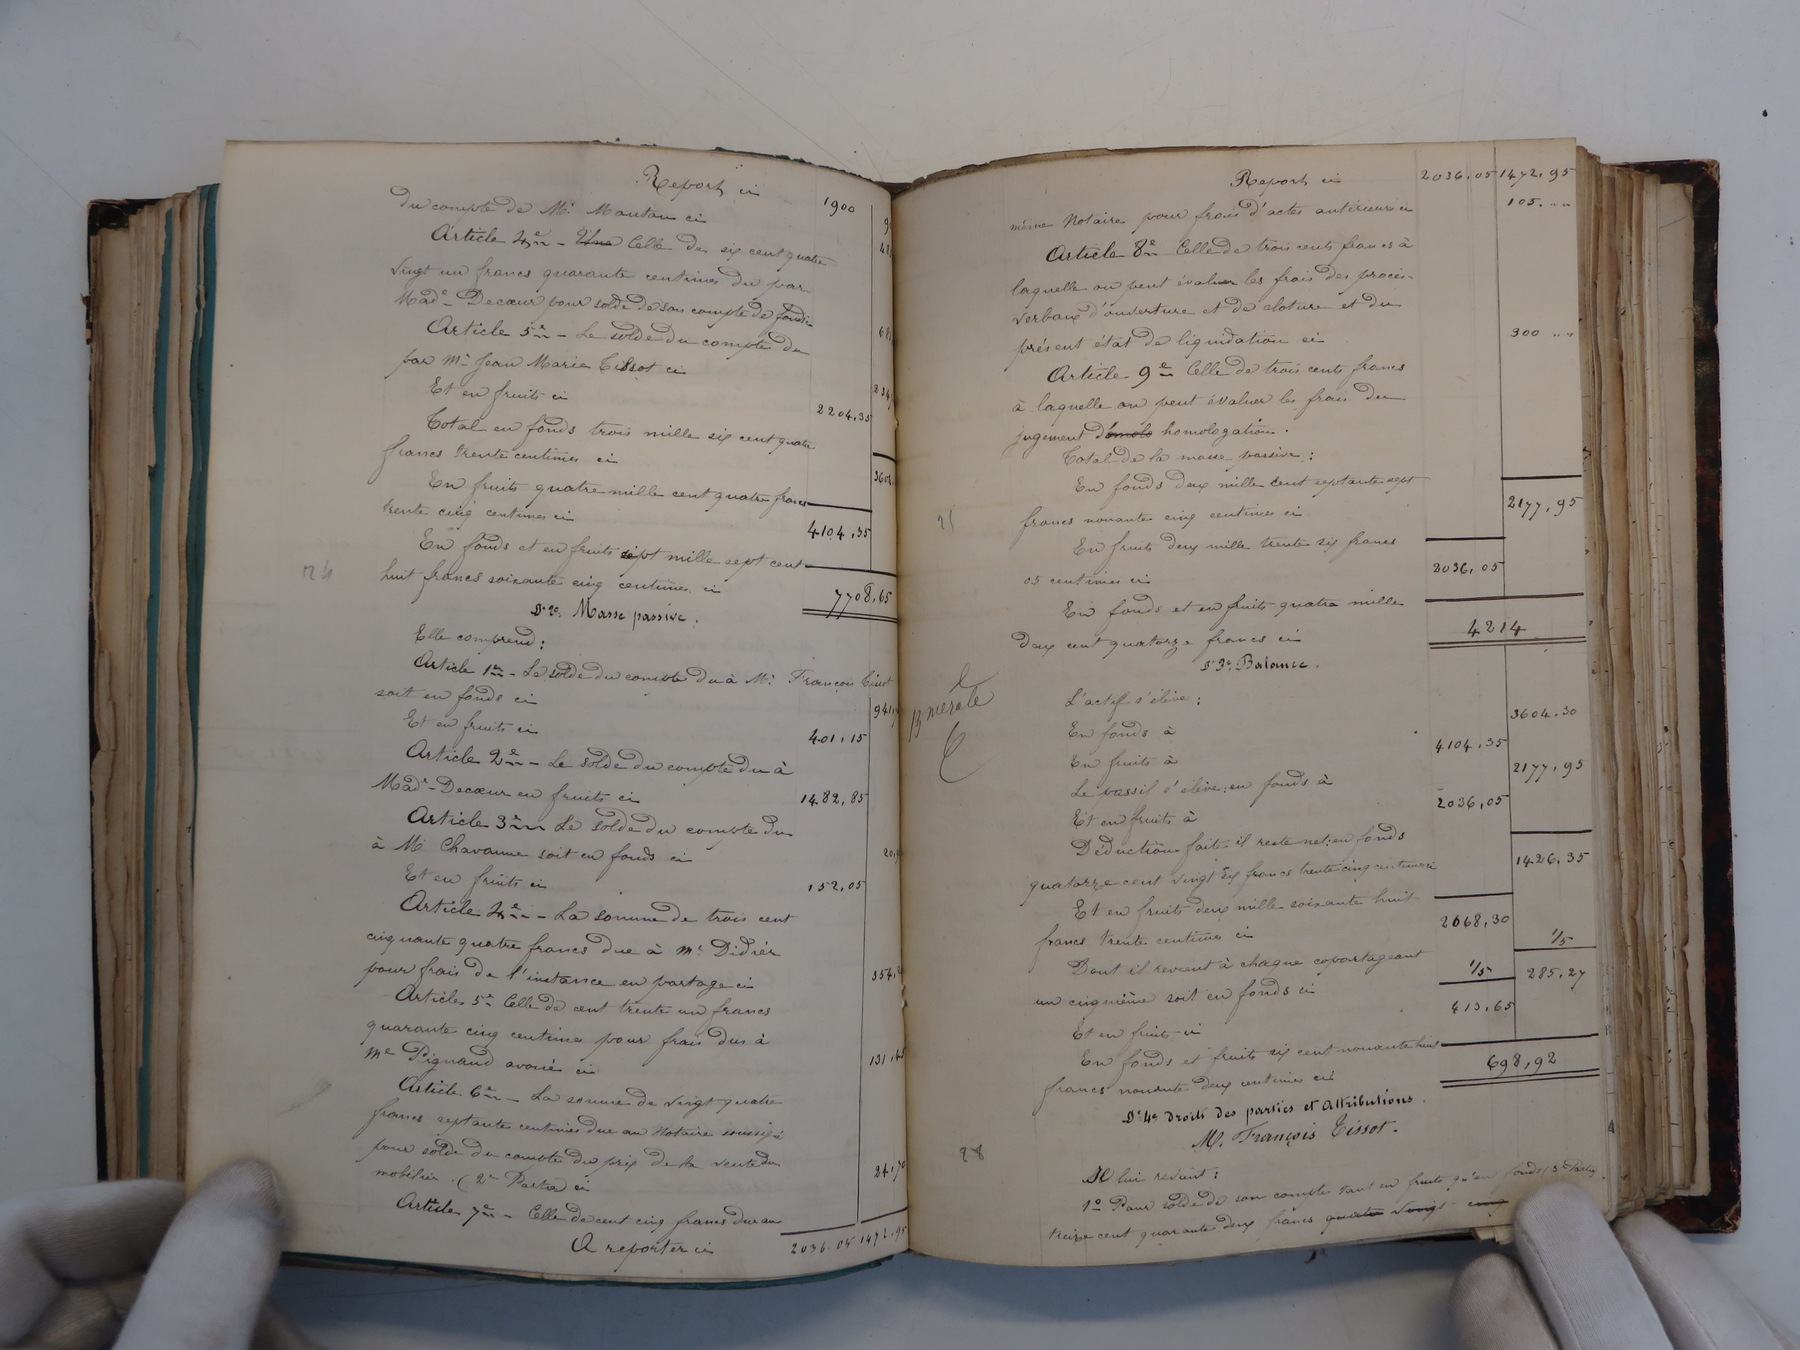 Report ci
1900
du compte de Mr. Moutou ci
Article 4e — Une Celle de six cent quatre
vingt un francs quarante centimes du par
Made. Decœur pour solde de son compte de fonds
Article 5e — Le solde du compte du
par Mr Jean Marie Tissot ci
Et en fruits ci 2204,35
Total en fonds trois mille six cent quatre
francs trente centimes ci 3604
En fruits quatre mille cent quatre francs
trente cinq centimes ci 4104,35
En fonds et en fruits sept mille sept cent
huit francs soixante cinq centimes ci 7708,65
24
§ 2e Masse passive.
Elle comprend:
Article 1er — Le solde du compte du à Mr. François Tissot
soit en fonds ci 941
Et en fruits ci 401,15
Article 2e — Le solde du compte du à
Made. Decœur en fruits ci 1482,85
Article 3e Le solde du compte du
à Mr Chavanne soit en fonds ci 20
Et en fruits ci 152,05
Article 4e — La somme de trois cent
cinquante quatre francs due à Me Didier
pour frais de l'instance en partage ci 354
Article 5e Celle de cent trente un francs
quarante cinq centimes pour frais dus à
Me Pignaud avoué ci 131,45
Article 6e — La somme de vingt quatre
francs septante centimes due au Notaire soussigné
pour solde du compte du prix de la vente du
mobilier. (2e Partie) ci 24,70
Article 7e — Celle de cent cinq francs due au
A reporter ci 2036.05 1472,95
Report ci 2036,05 1472,95
même Notaire pour frais d'actes antérieurs ci 105. " "
Article 8e Celle de trois cents francs à
laquelle on peut évaluer les frais des procès-
verbaux d'ouverture et de cloture et du
présent état de liquidation ci 300 " "
Article 9e Celle de trois cents francs
à laquelle on peut évaluer les frais du
jugement d'omolo homologation.
Total de la masse passive:
En fonds deux mille cent septante sept
francs nonante cinq centimes ci 2177,95
En fruits deux mille trente six francs
05 centimes ci 2036,05
En fonds et en fruits quatre mille
deux cent quatorze francs ci 4214
§ 3e Balance.
L'actif s'élève:
En fonds à 3604.30
En fruits à 4104.35
Le passif s'élève: en fonds à 2177,95
Et en fruits à 2036,05
Déduction faite il reste net: en fonds
quatorze cent vingt six francs trente cinq centimes ci 1426,35
Et en fruits deux mille soixante huit
francs trente centimes ci 2068,30
Dont il revient à chaque copartageant
1/5 1/5
un cinquième soit en fonds ci 285,27
Et en fruits ci 413,65
En fonds et fruits six cent nonante huit
francs nonante deux centimes ci 698,92
§ 4e Droits des parties et Attributions.
M. François Tissot.
28
Il lui revient:
1o Pour solde de son compte tant en fruits qu'en fonds (3e Partie)
treize cent quarante deux francs quatre vingt cinq